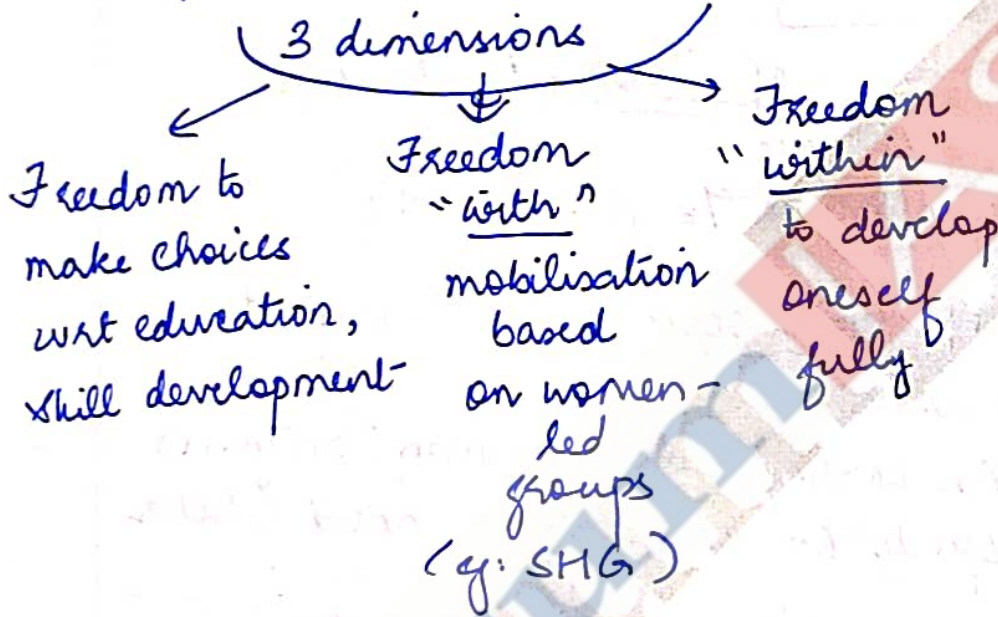 3 dimensions
Freedom to
make choices
wrt education,
skill development
Freedom
"with"
mobilisation
based
on women-
led
groups
(eg: SHG)
Freedom
"within"
to develop
oneself
fully